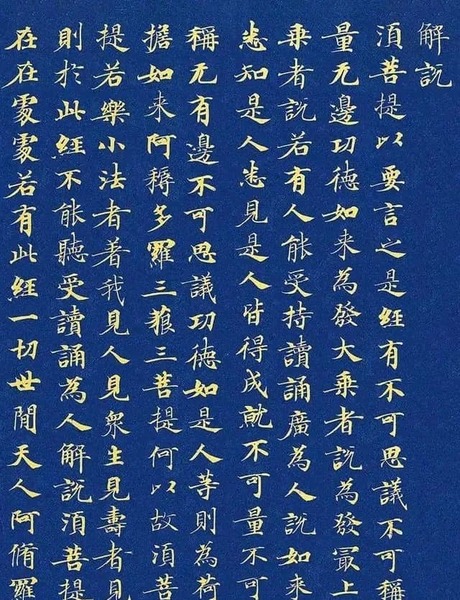 解說
須菩提以要言之是經有不可思議不可稱
量无邊功德如来為發大乗者說為發最上
乗者說若有人能受持讀誦廣為人說如来
悉知是人悉見是人皆得成就不可量不可
稱无有邊不可思議功德如是人等則為荷
擔如来阿耨多羅三藐三菩提何以故須菩
提若樂小法者著我見人見衆生見壽者見
則於此經不能聽受讀誦為人解說須菩提
在在處處若有此經一切世間天人阿脩羅